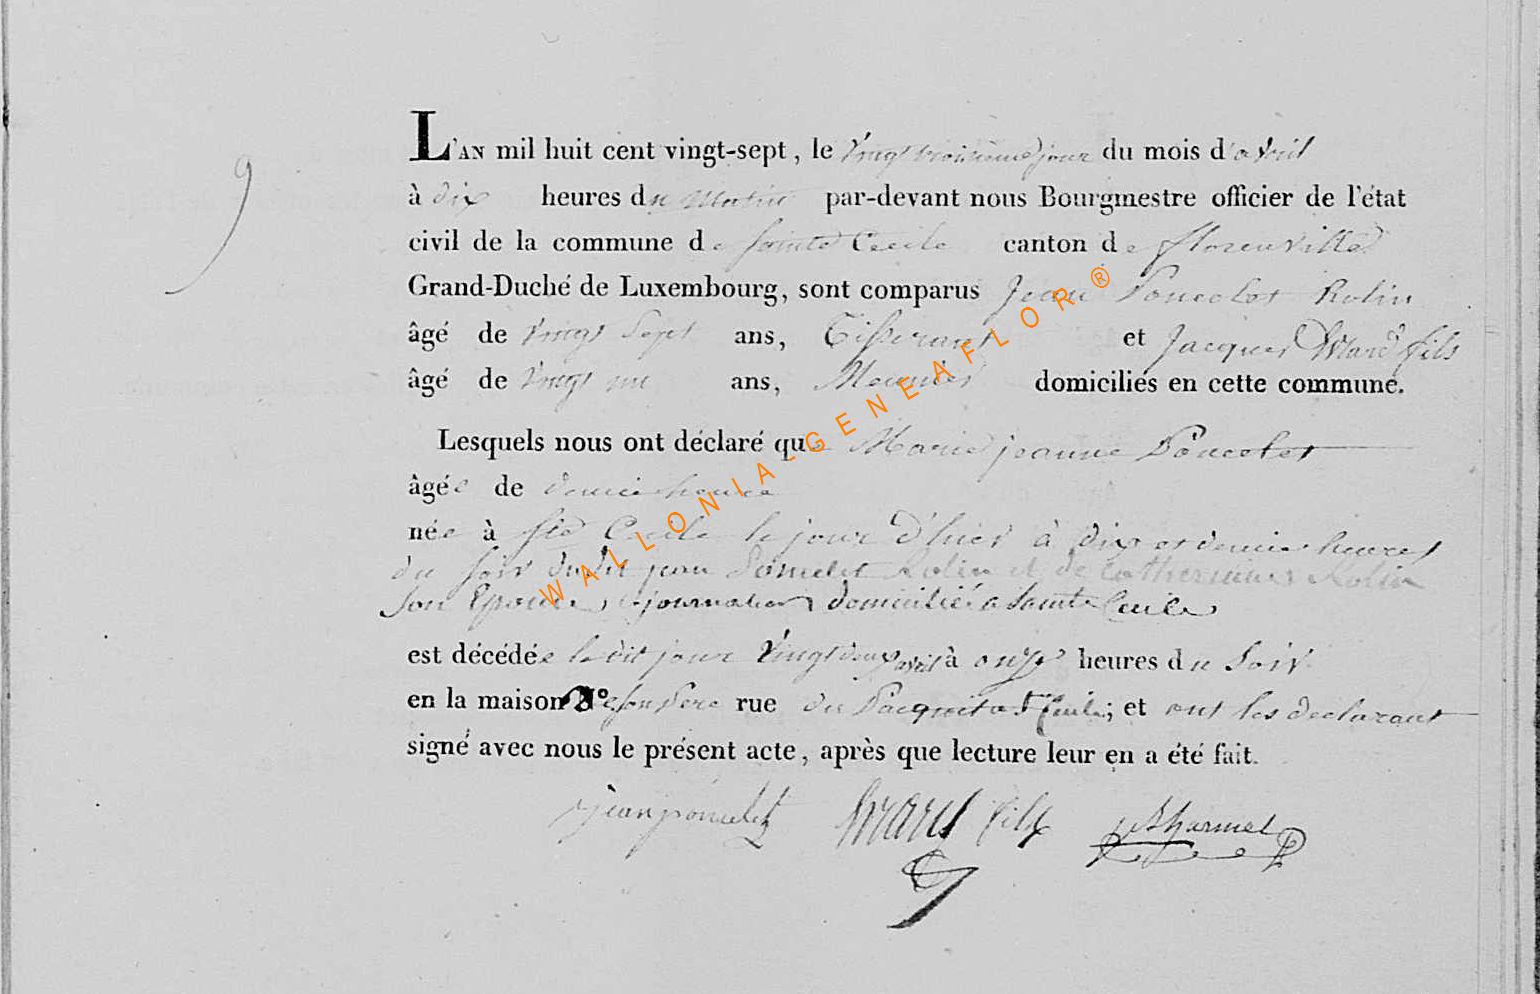 9
L'AN mil huit cent vingt-sept, le vingt troisieme jour du mois d'avril
à dix heures du matin par-devant nous Bourgmestre officier de l'état
civil de la commune de Sainte Cecile canton de florenville
Grand-Duché de Luxembourg, sont comparus Jean Poncelet Rolin
âgé de vingt sept ans, Tisserant et Jacques Mard fils
âgé de vingt un ans, Meunier domiciliés en cette commune.
Lesquels nous ont déclaré que Marie jeanne Poncelet
âgée de demie heure
née à Ste Cecile le jour d'hier à dix et demie heures
du soir dudit jean Poncelet Rolin et de Catherinne Rolin
son Epouse, journalier domicilié a Sainte Cecile
est décédée le dit jour vingt deux avril à onze heures du soir
en la maison de son Pere rue du Pacquis a St Cecile; et ont les declarant
signé avec nous le présent acte, après que lecture leur en a été fait.
jean poncelet Mard fils
WALLONIA-GENEAFLOR®